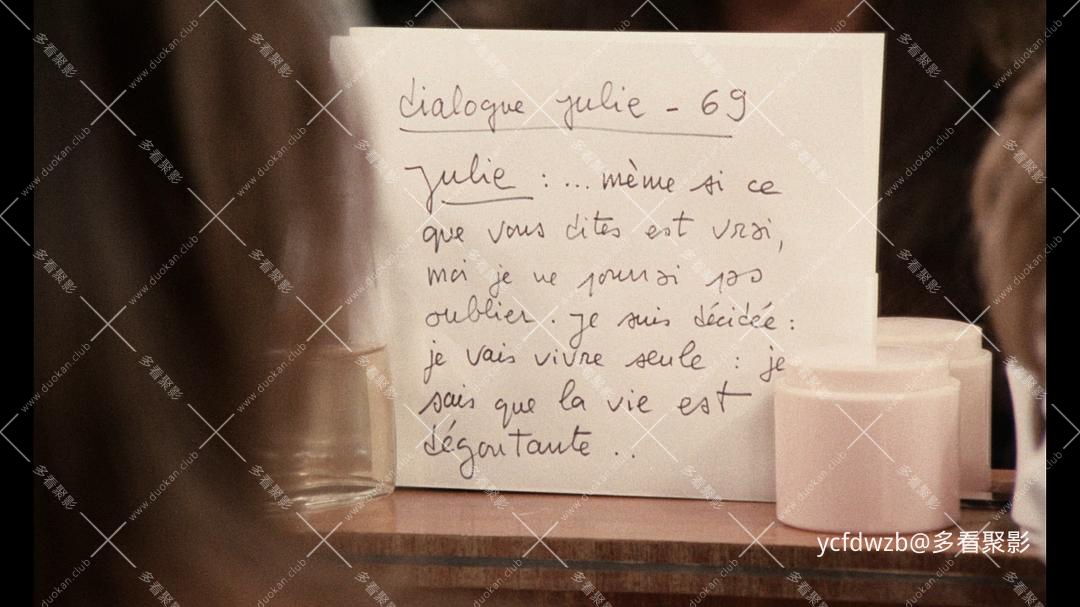 dialogue julie - 69
Julie : ... même si ce
que vous dites est vrai,
moi je ne pourrai pas
oublier. Je suis décidée :
je vais vivre seule : je
sais que la vie est
dégoutante ..
ycfdwzb@多看聚影
多看聚影
www.duokan.club